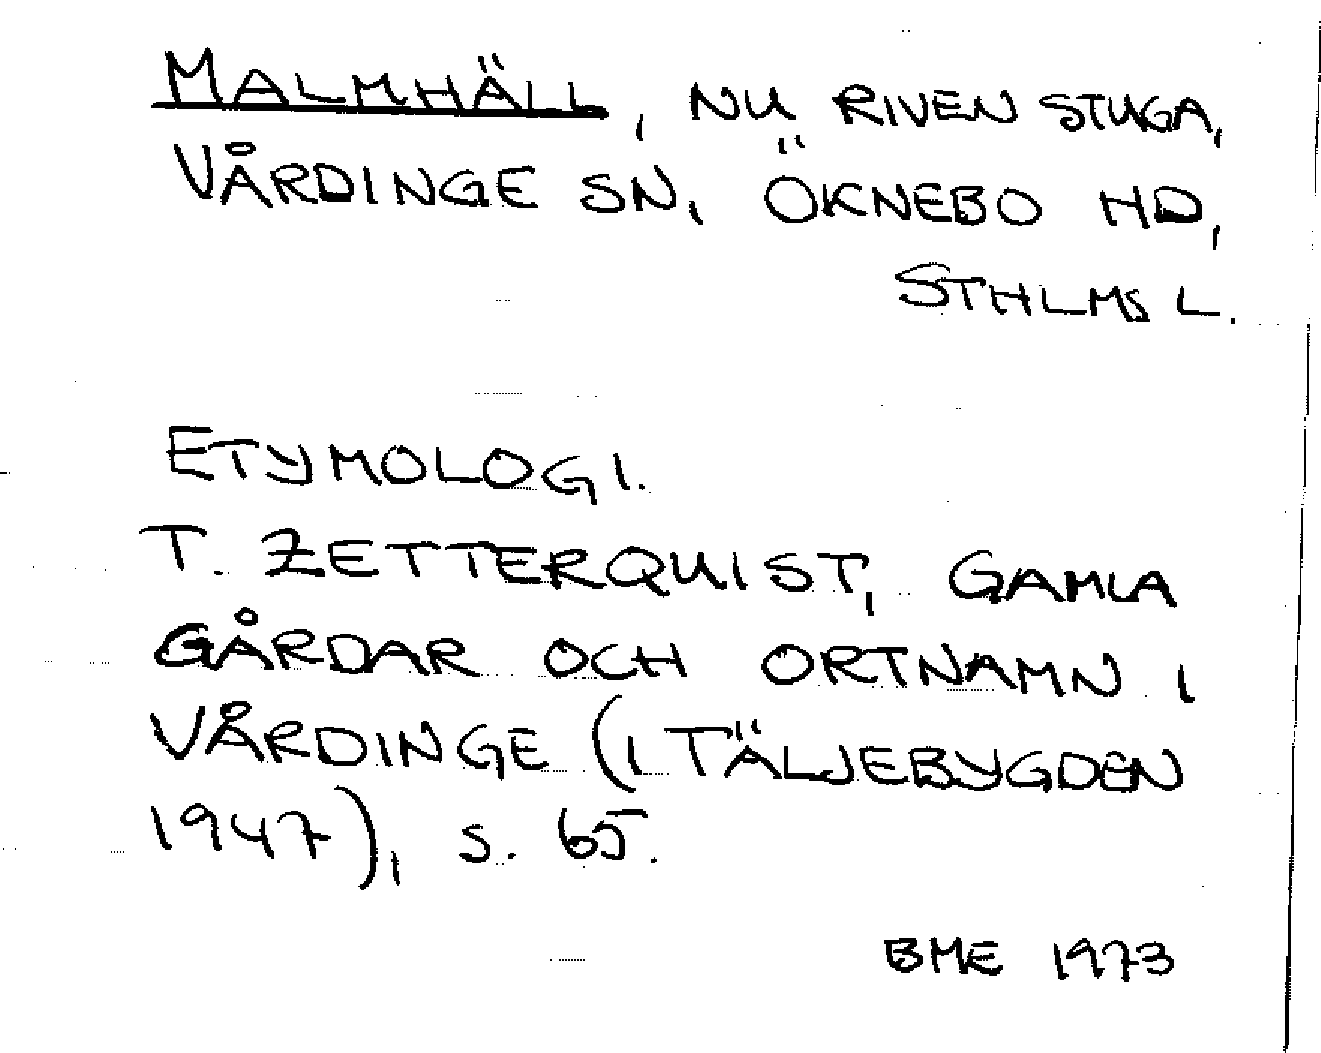 MALMHÄLL, NU RIVEN STUGA,
VÅRDINGE SN, ÖKNEBO HD,
STHLMS L.
ETYMOLOGI.
T. ZETTERQUIST, GAMLA
GÅRDAR OCH ORTNAMN I
VÅRDINGE (I TÄLJEBYGDEN
1947), S. 65.
BME 1973